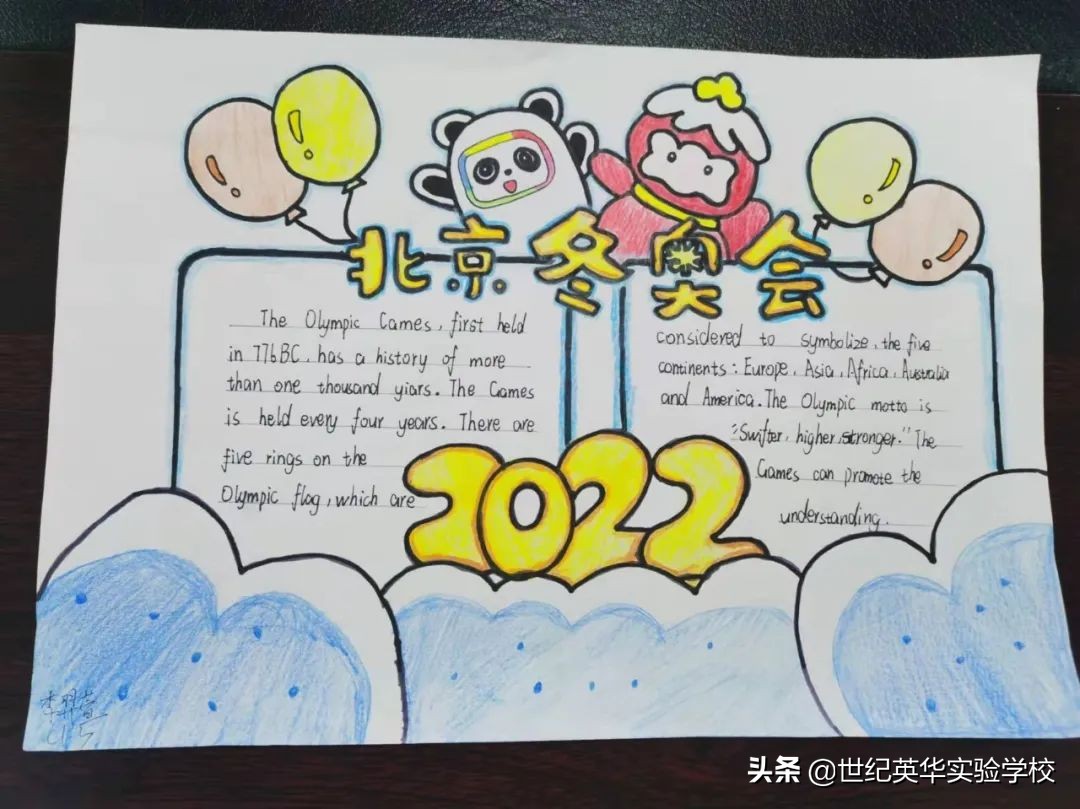 北京冬奥会
The Olympic Games, first held
in 776BC, has a history of more
than one thousand yiars. The Games
is held every four years. There are
five rings on the
Olympic flag, which are
considered to symbolize, the five
continents: Europe, Asia, Africa, Australia
and America. The Olympic motto is
"Swifter, higher, stronger." The
Games can promote the
understanding.
2022
头条 @世纪英华实验学校